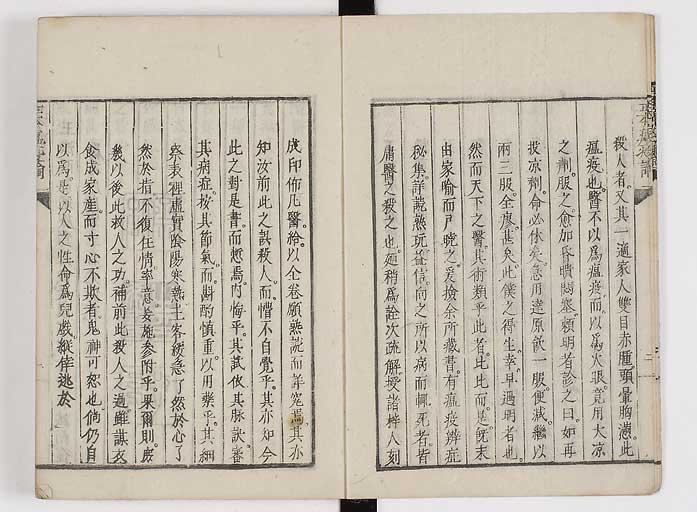 殺人者。又其一適家人雙目赤腫。頭暈胸懣。此
瘟疫也。醫不以爲瘟疫。而以爲火眼。竟用大凉
之劑。服之愈加昏憒悶塞。頼明者診之曰。如再
投凉劑。命必休矣。急用達原飲一服。便減。繼以
兩三服。全廖。甚矣。此僕之得生。幸。早遇明者也。
然而天下之醫。其術類乎此者。比比而是。既末
由家喻而戸曉之。爰撿余所藏書。有瘟疫辨症
秘集。詳説熟玩。益信向之所以病而輒死者。皆
庸醫之殺之也。廼稍爲詮次疏解。授諸梓人刻
二
成印佈凡醫。給以全卷。願熟読而詳究焉。其亦
知汝前此之誤殺人。而懵不自覺乎。其亦知今
此之對是書。而愬焉内悔乎。其試依其脉訣。審
其病症。按其節氣。而斟酌慎重。以用藥乎。其細
察表裡虚實陰陽寒熱主客緩急。了然於心。了
然於指。不復任情率意妄施參附乎。果爾則。庶
幾以後此救人之功。補前此殺人之過。雖謀衣
食成家產。而寸心不欺者。鬼神可恕也。倘仍自
以爲是。以人之性命爲兒戲。縦倖逃於